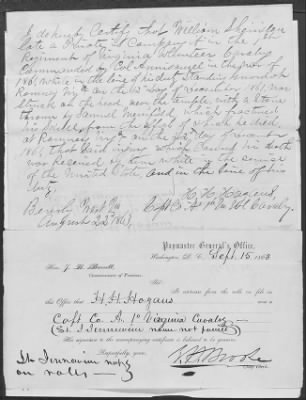 I do hereby Certify that William Shinston
late a Private of Company A in the 1st
Regiment of Virginia Volunteer Cavalry
Commanded by Col Annisansel in the year of
186 while in the line of his duty standing Guard at
Romney Va on the day of December 1861 was
struck on the head near the temple with a stone
thrown by Samuel Merrifield which
his from the effect of which he died
at on the day of
1861 that said injury which caused his death
was received by him while in the service
of the United States, and in the line of his
duty.
H. H. Hagans
Capt Co A 1st Va Vol Cavalry.
Beverly West Va
August 22d 1863
Paymaster General's Office,
Washington, D. C., Sept. 15, 1863
Hon. J. H. Barrett,
Commissioner of Pensions.
Sir: It appears from the rolls on file in
this Office that H. H. Hagans was a
Capt Co. A. 1st Virginia Cavalry
(Lt. J Jennewin name not found)
His signature to the accompanying certificate is believed to be genuine.
Respectfully, yours,
Lt Jennewin not
on rolls
Chief Clerk.